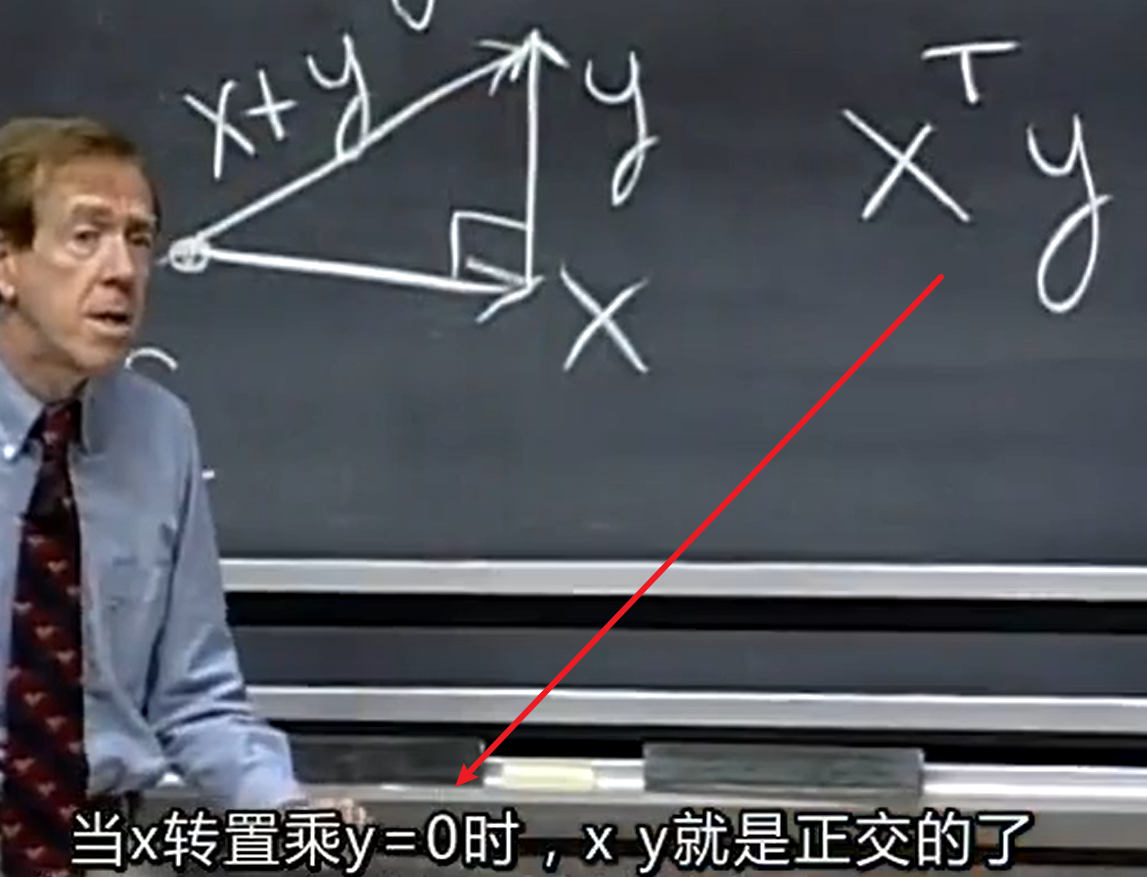 x+y
y
x^T y
x
当x转置乘y=0时，x y就是正交的了